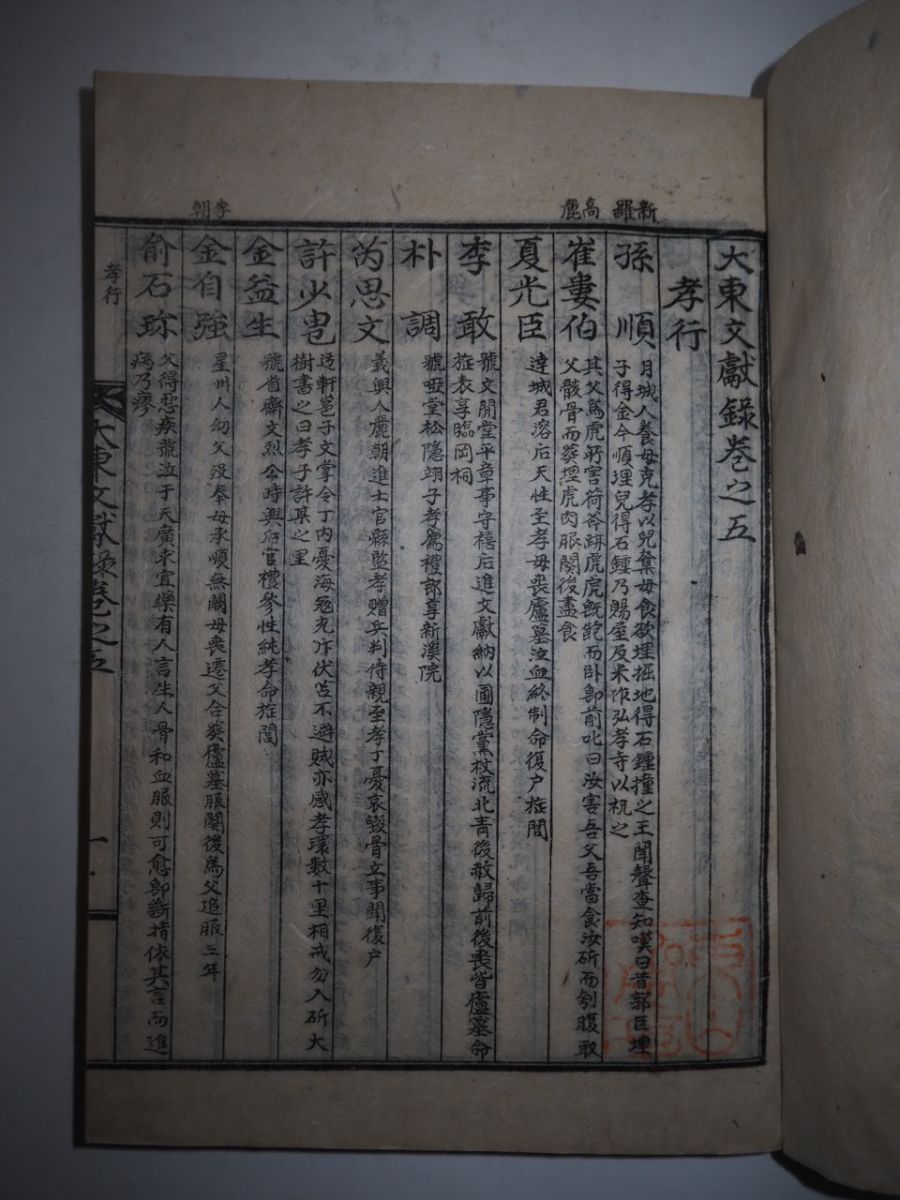 新羅
高麗
李朝
大東文獻錄卷之五
孝行
孫順 月城人養母克孝以兒奪母食欲埋掘地得石鍾撞之王聞聲查知嘆曰昔郭巨埋
子得金今順埋兒得石鍾乃賜屋及米作弘孝寺以祝之
崔婁伯 其父爲虎所害荷斧跡虎虎旣飽而卧卽前叱曰汝害吾父吾當食汝斫而刳腹取
父骸骨而葬埋虎肉服闋後盡食
夏光臣 達城君溶后天性至孝母喪廬墓泣血終制命復户旌閭
李敢 號文閒堂平章事守禧后進文獻納以圃隱黨杖流北靑後赦歸前後喪皆廬墓命
旌表享臨岡祠
朴調 號啞堂松隱翊子孝薦禮郞享新溪院
芮思文 義興人麗朝進士官縣監孝贈兵判侍親至孝丁憂哀毁骨立事聞復户
許少㐌 迃軒邕子文掌令丁内憂海冦充斥伏苫不避賊亦感孝環數十里相戒勿入斫大
樹書之曰孝子許某之里
金益生 號省齋文烈公時興后官禮參性純孝命旌閭
金自強 星州人幼父歿奉母承順無闕母喪遷父合葬廬墓服闋後爲父追服三年
俞石珎 父得惡疾號泣于天廣求宜藥有人言生人骨和血服則可愈卽斷指依其言而進
病乃瘳
孝行
大東文獻錄卷之五
一